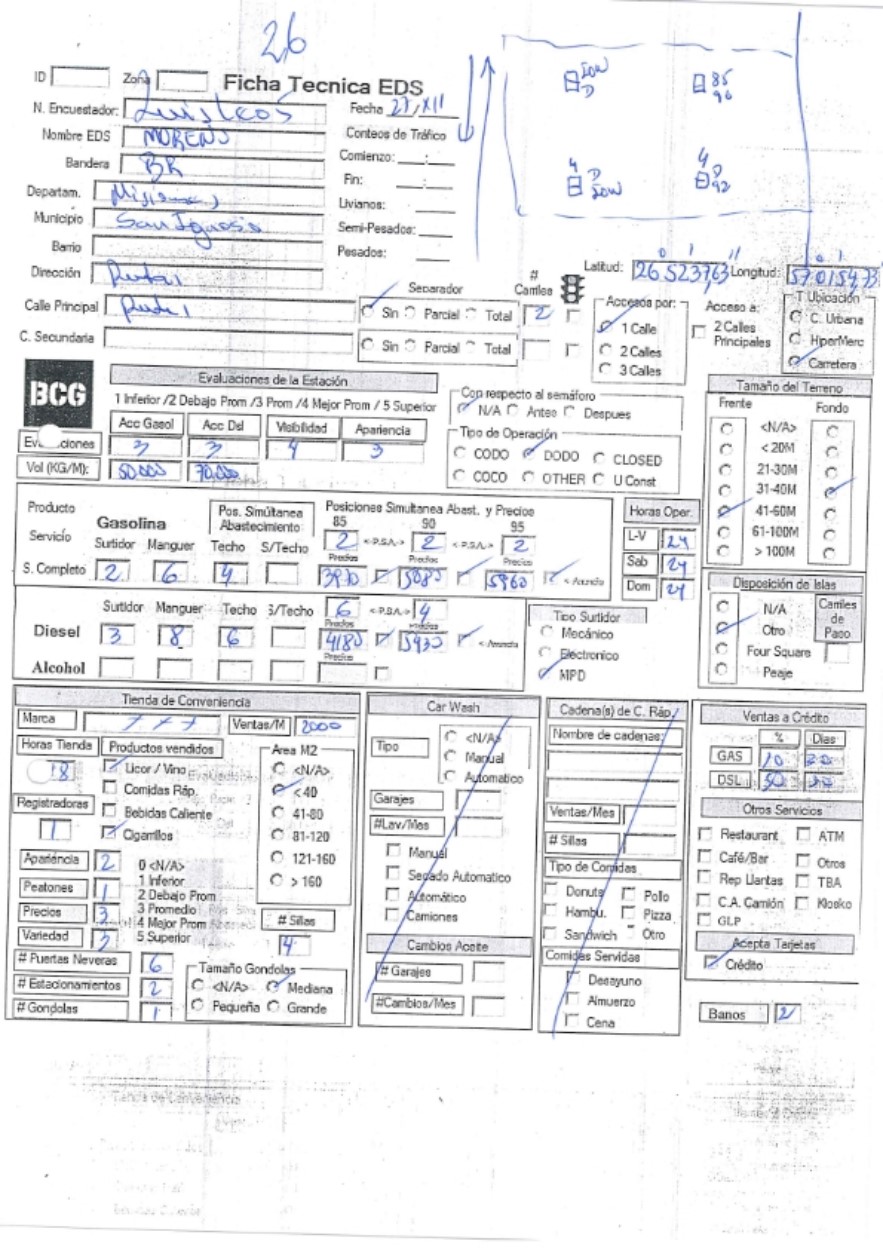 26
ID Zona Ficha Tecnica EDS
N. Encuestador: Luis Fecha 27/XII
Nombre EDS MORENO Conteos de Tráfico
Bandera BR Comienzo: __:__
Departam. Misiones Fin: __:__
Municipio San Ignacio Livianos:
Barrio Semi-Pesados:
Dirección Ruta 1 Pesados:
D
85
90
4 D
4 D 92
Latitud: 26 52376 Longitud: 57 01
Calle Principal Ruta 1 Separador Sin Parcial Total # Carriles 2
C. Secundaria Sin Parcial Total
Accesos por: 1 Calle 2 Calles 3 Calles
Acceso a: 2 Calles Principales
T Ubicación C. Urbana HiperMerc Carretera
BCG
Evaluaciones de la Estación
1 Inferior /2 Debajo Prom /3 Prom /4 Mejor Prom / 5 Superior
Acc Gasol Acc Dsl Visibilidad Apariencia
Evaluaciones 3 3 4 3
Vol (KG/M): 50.000 70.000
Con respecto al semáforo
N/A Antes Despues
Tipo de Operación
CODO DODO CLOSED
COCO OTHER U Const
Tamaño del Terreno
Frente Fondo
<N/A>
< 20M
21-30M
31-40M
41-60M
61-100M
> 100M
Producto
Servicio Gasolina
Pos. Simúltanea Abastecimiento
Posiciones Simultanea Abast. y Precios
85 90 95
Surtidor Manguer Techo S/Techo 2 <-P.S.A.-> 2 <-P.S.A.-> 2
Precios Precios Precios
S. Completo 2 6 4 5080 5960 <-Anuncia
Horas Oper.
L-V 24
Sab 24
Dom 24
Surtidor Manguer Techo S/Techo 6 <-P.S.A.-> 4
Precios Precios
Diesel 3 8 6 4180 5930 <-Anuncia
Precios
Alcohol
Tipo Surtidor
Mecánico
Electronico
MPD
Disposición de Islas
N/A
Otro
Four Square
Peaje
Carriles de Paso
Tienda de Conveniencia
Marca Ventas/M 2000
Horas Tienda Productos vendidos Area M2
18 Licor / Vino <N/A>
Comidas Ráp. < 40
Registradoras Bebidas Caliente 41-80
1 Cigarrillos 81-120
121-160
> 160
Apariencia 2 0 <N/A>
Peatones 1 1 Inferior
2 Debajo Prom
Precios 3 3 Promedio
4 Mejor Prom
Variedad 2 5 Superior
# Sillas
4
# Puertas Neveras 6
# Estacionamientos 2
# Gondolas 1
Tamaño Gondolas
<N/A> Mediana
Pequeña Grande
Car Wash
Tipo <N/A> Manual Automatico
Garajes
#Lav/Mes
Manual
Secado Automatico
Automático
Camiones
Cambios Aceite
# Garajes
#Cambios/Mes
Cadena(s) de C. Ráp.
Nombre de cadenas:
Ventas/Mes
# Sillas
Tipo de Comidas
Donuts Pollo
Hambu. Pizza
Sandwich Otro
Comidas Servidas
Desayuno
Almuerzo
Cena
Ventas a Crédito
% Dias
GAS 10 30
DSL 50 30
Otros Servicios
Restaurant ATM
Café/Bar Otros
Rep Llantas TBA
C.A. Camión Kiosko
GLP
Acepta Tarjetas
Crédito
Banos 2